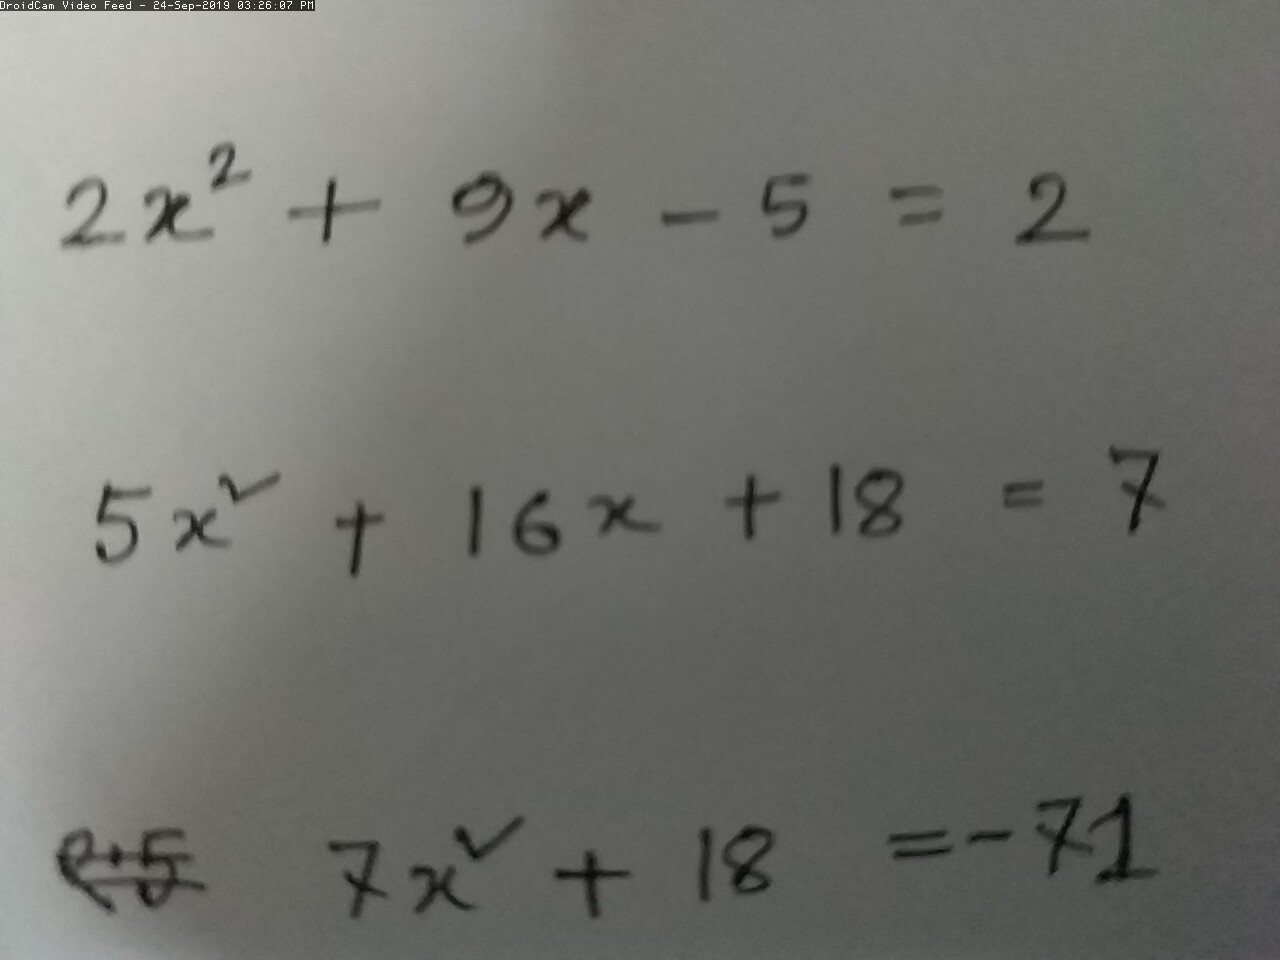 DroidCam Video Feed - 24-Sep-2019 03:26:07 PM
2x² + 9x - 5 = 2
5x² + 16x + 18 = 7
7x² + 18 = -71